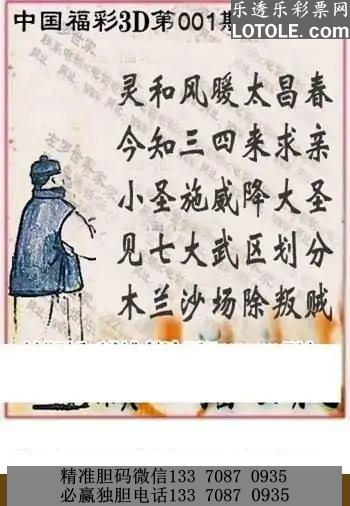 中国福彩3D第001期
乐透乐彩票网
LOTOLE.COM
灵和风暖太昌春
今知三四来求亲
小圣施威降大圣
见七大武区划分
木兰沙场除叛贼
精准胆码微信133 7087 0935
必赢独胆电话133 7087 0935